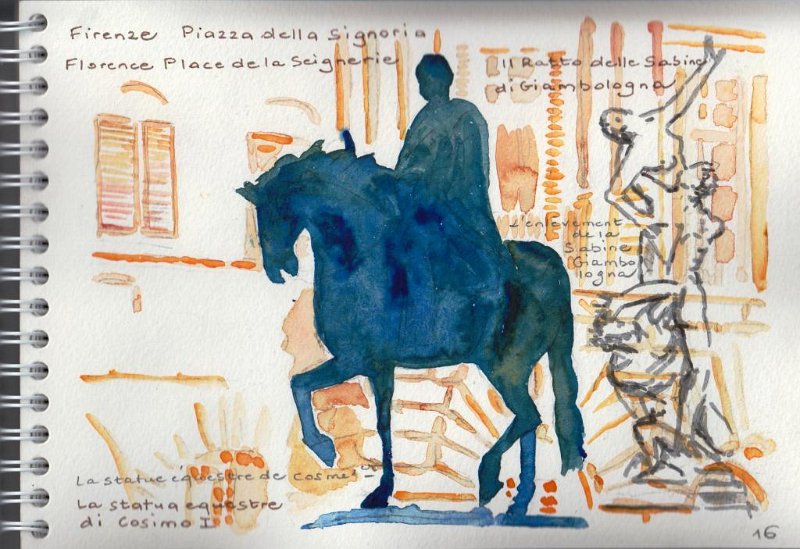 Firenze Piazza della Signoria
Florence Place de la Seignerie
Il Ratto delle Sabine
di Giambologna
L'enlèvement
de la
Sabine
Giambo
logna
La statue équestre de Cosme 1er
La statua equestre
di Cosimo I
16